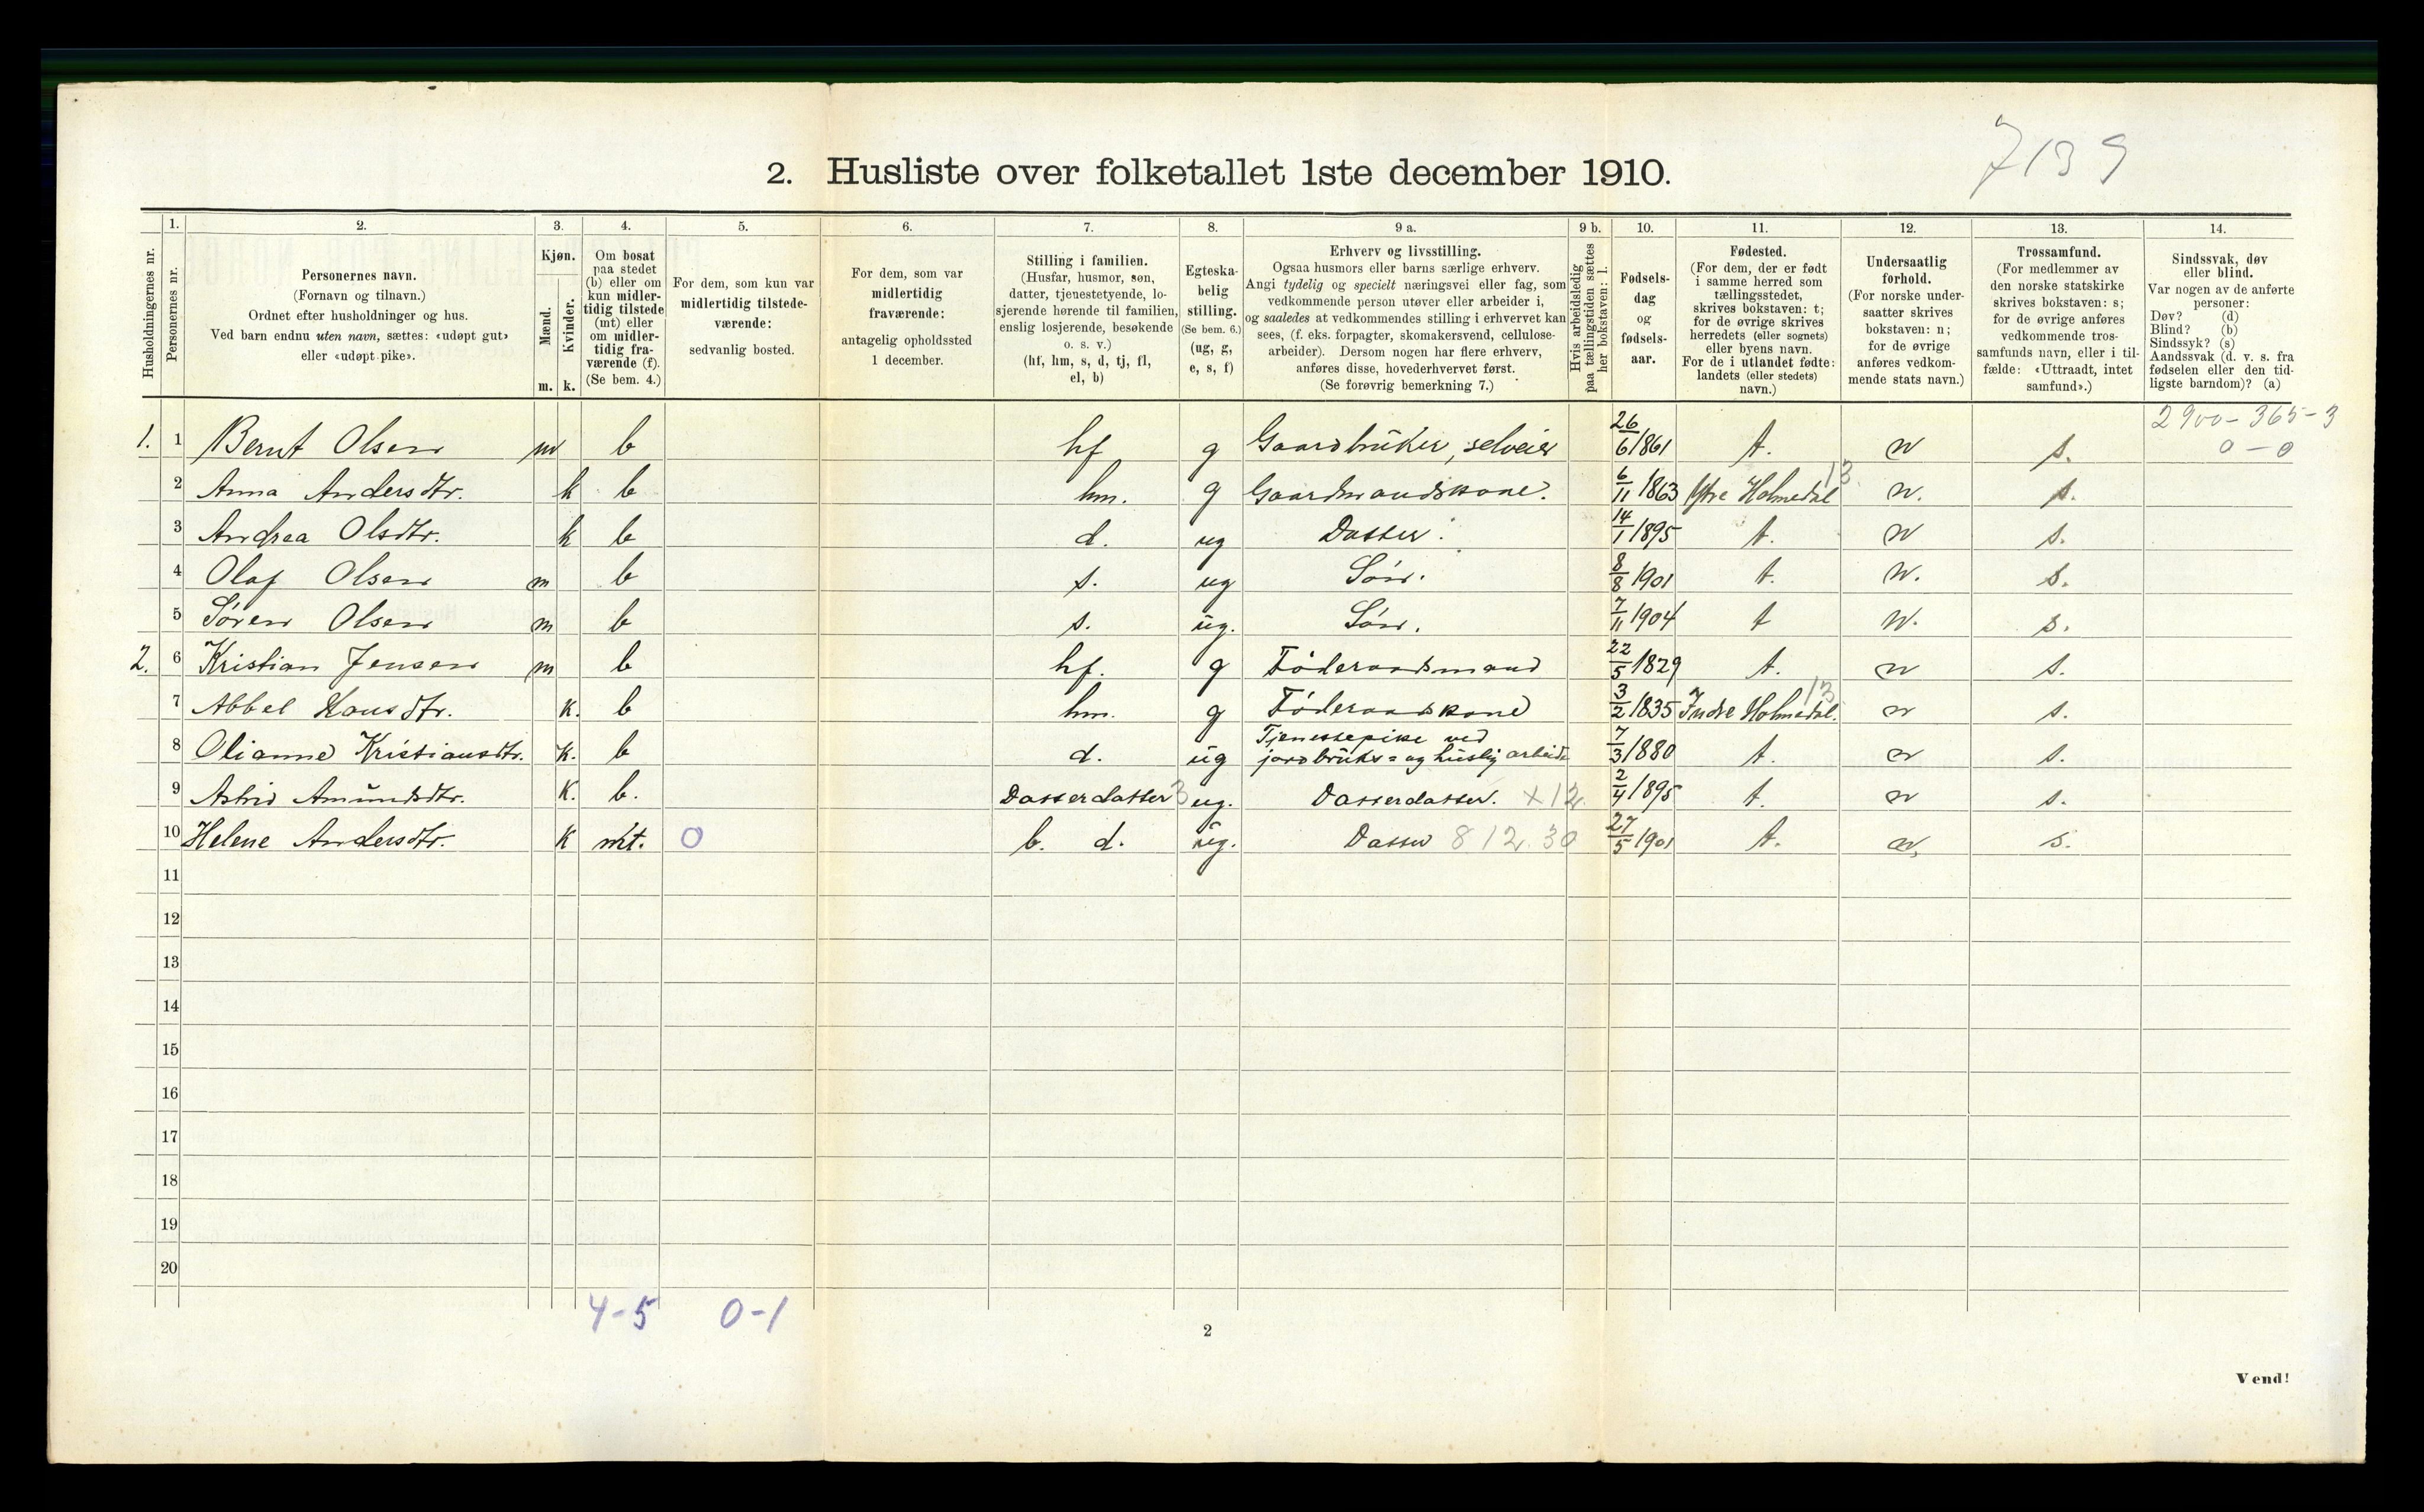 7139
2. Husliste over folketallet 1ste december 1910.
Husholdningernes nr.
1. Personernes nr.
2. Personernes navn.
(Fornavn og tilnavn.)
Ordnet efter husholdninger og hus.
Ved barn endnu uten navn, sættes: «udøpt gut»
eller «udøpt pike».
3. Kjøn.
Mænd. m.
Kvinder. k.
4. Om bosat
paa stedet
(b) eller om
kun midler-
tidig tilstede
(mt) eller
om midler-
tidig fra-
værende (f).
(Se bem. 4.)
5. For dem, som kun var
midlertidig tilstede-
værende:
sedvanlig bosted.
6. For dem, som var
midlertidig
fraværende:
antagelig opholdssted
1 december.
7. Stilling i familien.
(Husfar, husmor, søn,
datter, tjenestetyende, lo-
sjerende hørende til familien,
enslig losjerende, besøkende
o. s. v.)
(hf, hm, s, d, tj, fl,
el, b)
8. Egteska-
belig
stilling.
(Se bem. 6.)
(ug, g,
e, s, f)
9 a. Erhverv og livsstilling.
Ogsaa husmors eller barns særlige erhverv.
Angi tydelig og specielt næringsvei eller fag, som
vedkommende person utøver eller arbeider i,
og saaledes at vedkommendes stilling i erhvervet kan
sees, (f. eks. forpagter, skomakersvend, cellulose-
arbeider). Dersom nogen har flere erhverv,
anføres disse, hovederhvervet først.
(Se forøvrig bemerkning 7.)
9 b. Hvis arbeidsledig
paa tællingstiden sættes
her bokstaven: l.
10. Fødsels-
dag
og
fødsels-
aar.
11. Fødested.
(For dem, der er født
i samme herred som
tællingsstedet,
skrives bokstaven: t;
for de øvrige skrives
herredets (eller sognets)
eller byens navn.
For de i utlandet fødte:
landets (eller stedets)
navn.)
12. Undersaatlig
forhold.
(For norske under-
saatter skrives
bokstaven: n;
for de øvrige
anføres vedkom-
mende stats navn.)
13. Trossamfund.
(For medlemmer av
den norske statskirke
skrives bokstaven: s;
for de øvrige anføres
vedkommende tros-
samfunds navn, eller i til-
fælde: «Uttraadt, intet
samfund».)
14. Sindssvak, døv
eller blind.
Var nogen av de anførte
personer:
Døv? (d)
Blind? (b)
Sindssyk? (s)
Aandssvak (d. v. s. fra
fødselen eller den tid-
ligste barndom)? (a)
2900-365-3
0-0
1. 1 Bernt Olsen m b hf g Gaardbruker, selveier 26/6 1861 t. n s.
2 Anna Andersdtr. k b hm. g Gaardmandskone. 6/11 1863 Ytre Holmedal 13 n. s.
3 Andrea Olsdtr. k b d. ug Datter. 14/1 1895 t. n s.
4 Olaf Olsen m b s. ug Sön. 8/8 1901 t. n. s.
5 Sören Olsen m b s. ug. Sön. 7/11 1904 t n. s.
2. 6 Kristian Jensen m b hf. g Föderaadsmand 22/5 1829 t. n s.
7 Abbel Hansdtr. k. b hm. g Föderaadskone 3/2 1835 Indre Holmedal. 13 n s.
8 Olianne Kristiansdtr. k. b d. ug Tjenestepike ved
jordbruks= og huslig arbeide 7/3 1880 t. n s.
9 Astrid Amundsdtr. k. b. Datterdatter 3 ug. Datterdatter. x12. 2/4 1895 t. n s.
10 Helene Andersdtr. k mt. 0 b. d. ug. Datter 8.12.30 27/5 1901 t. n. s.
11
12
13
14
15
16
17
18
19
20
4-5 0-1
2
Vend!